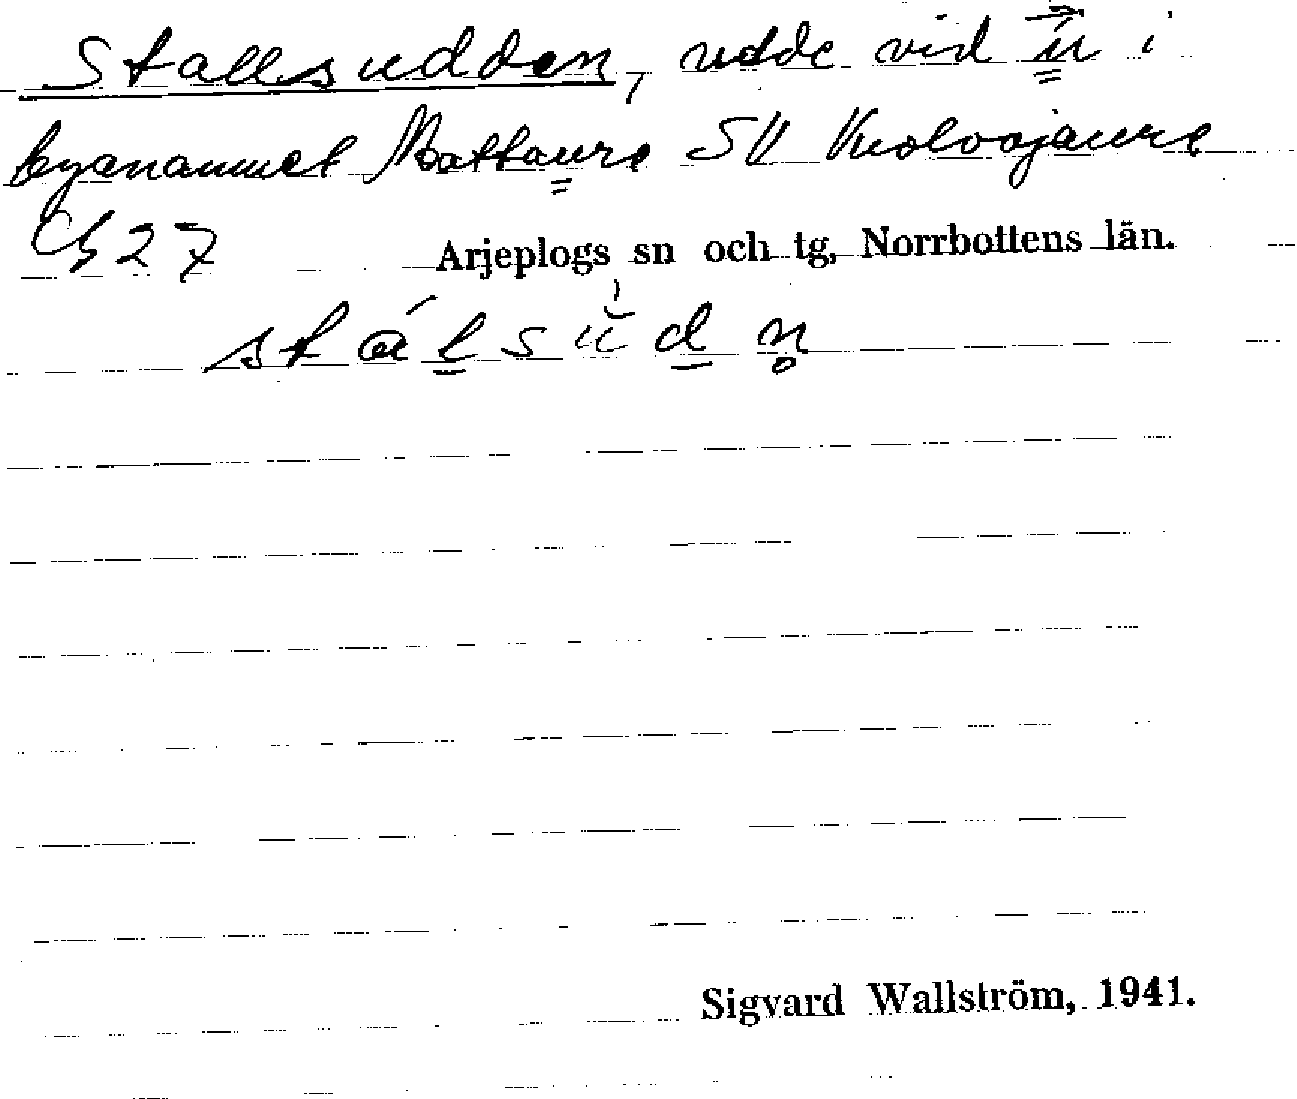 Stallsudden, udde vid u i
byanamnet Mattaure SV Vuolvojaure
27 Arjeplogs sn och tg, Norrbottens län.
stálsùdn̥
Sigvard Wallström, 1941.